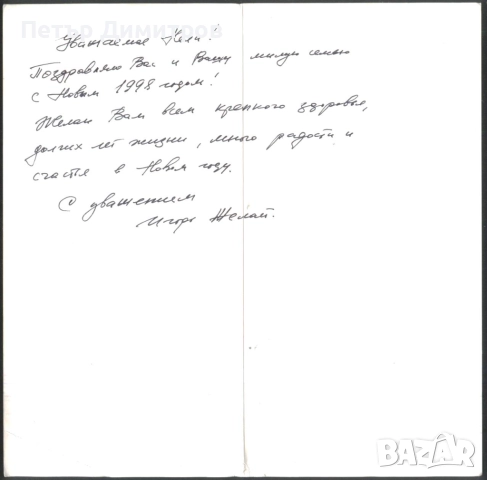 Петър Димитров
Уважаемая Нели!
Поздравляю Вас и Вашу милую семью
с Новым 1998 годом!
Желаю Вам всем крепкого здоровья,
долгих лет жизни, много радости и
счастья в Новом году.
С уважением
Игорь Желай.
BAZAR